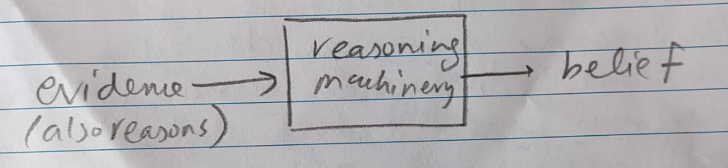 evidence
(also reasons)
reasoning
machinery
belief